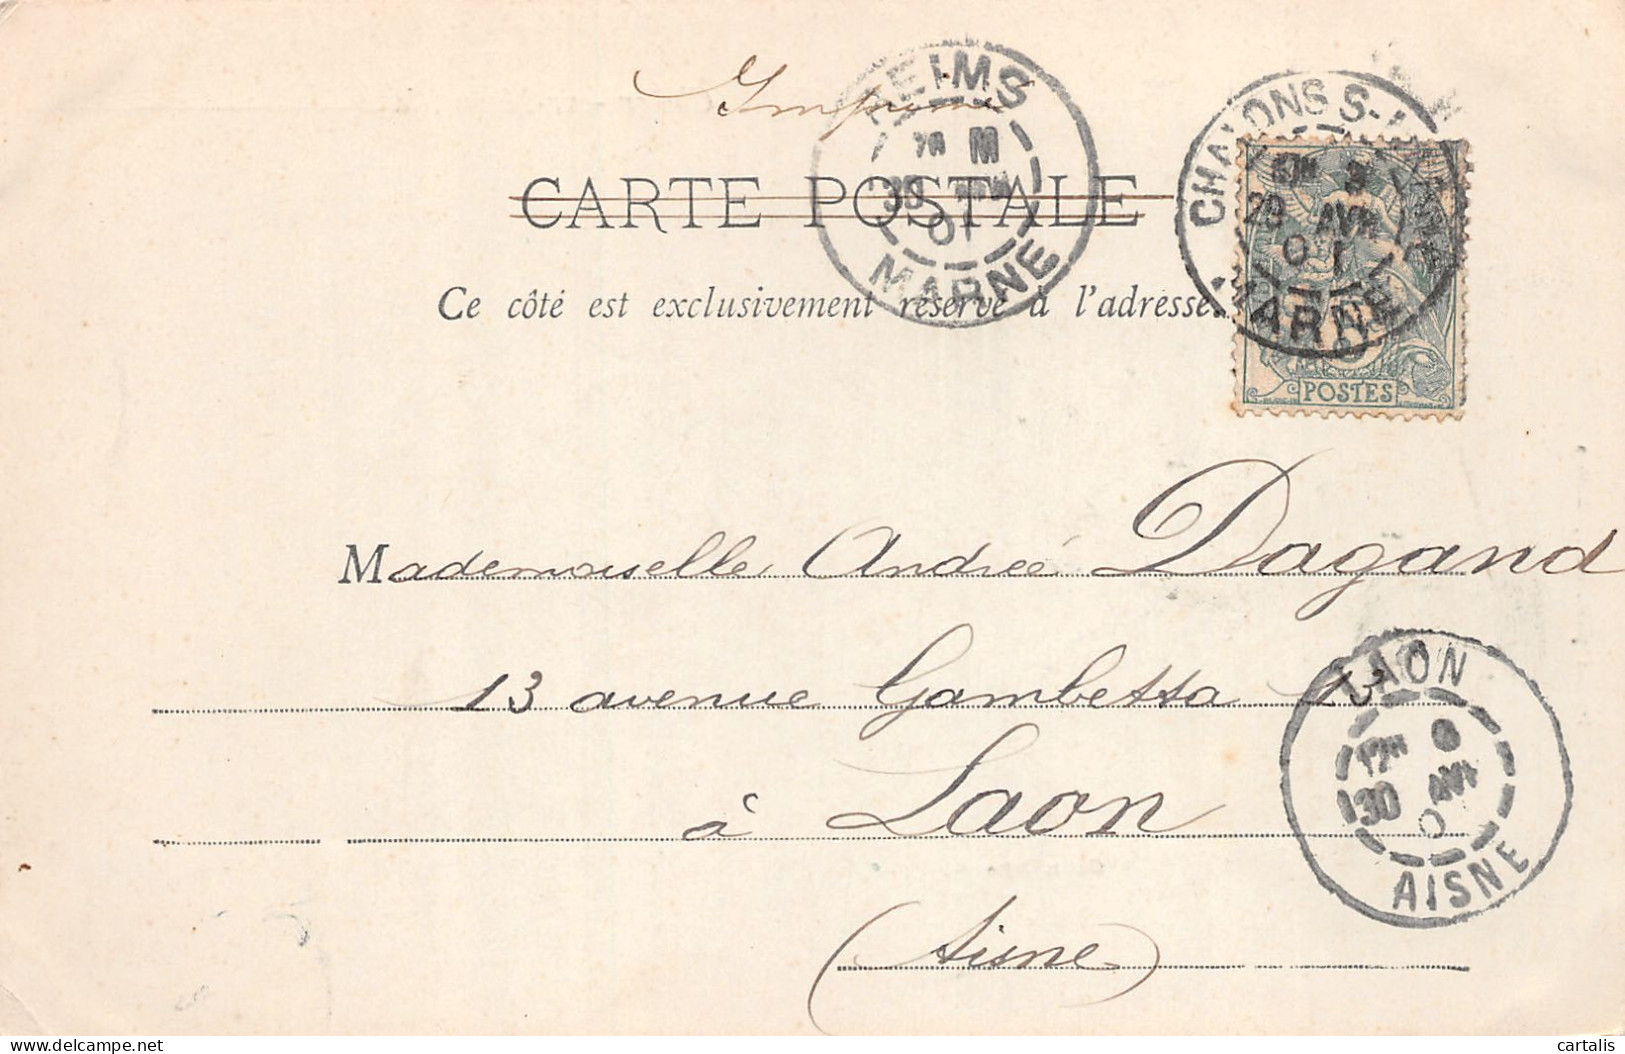 Imprimé
CARTE POSTALE
Ce côté est exclusivement réservé à l'adresse.
REIMS
MARNE
30
01
CHALONS S-
MARNE
AVR
01
POSTES
Mademoiselle Andrée Dagand
13 avenue Gambetta 13
à Laon
(Aisne)
LAON
30 AVR
AISNE
cartalis
delcampe.net